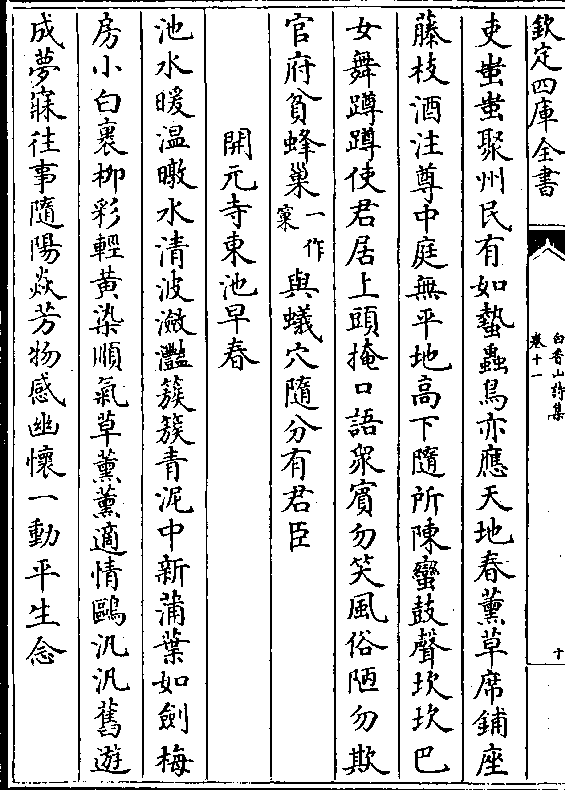 欽定四庫全書
白香山詩集
卷十一
十
吏蚩蚩聚州民有如蟄蟲鳥亦應天地春薰草席鋪座
藤枝酒注尊中庭無平地高下隨所陳蠻鼓聲坎坎巴
女舞蹲蹲使君居上頭掩口語衆賓勿笑風俗陋勿欺
官府貧蜂巢一作窠與蟻穴隨分有君臣
開元寺東池早春
池水暖温暾水清波瀲灧簇簇青泥中新蒲葉如劍梅
房小白裹柳彩輕黄染順氣草薰薰適情鷗汎汎舊遊
成夢寐往事隨陽焱芳物感幽懷一動平生念